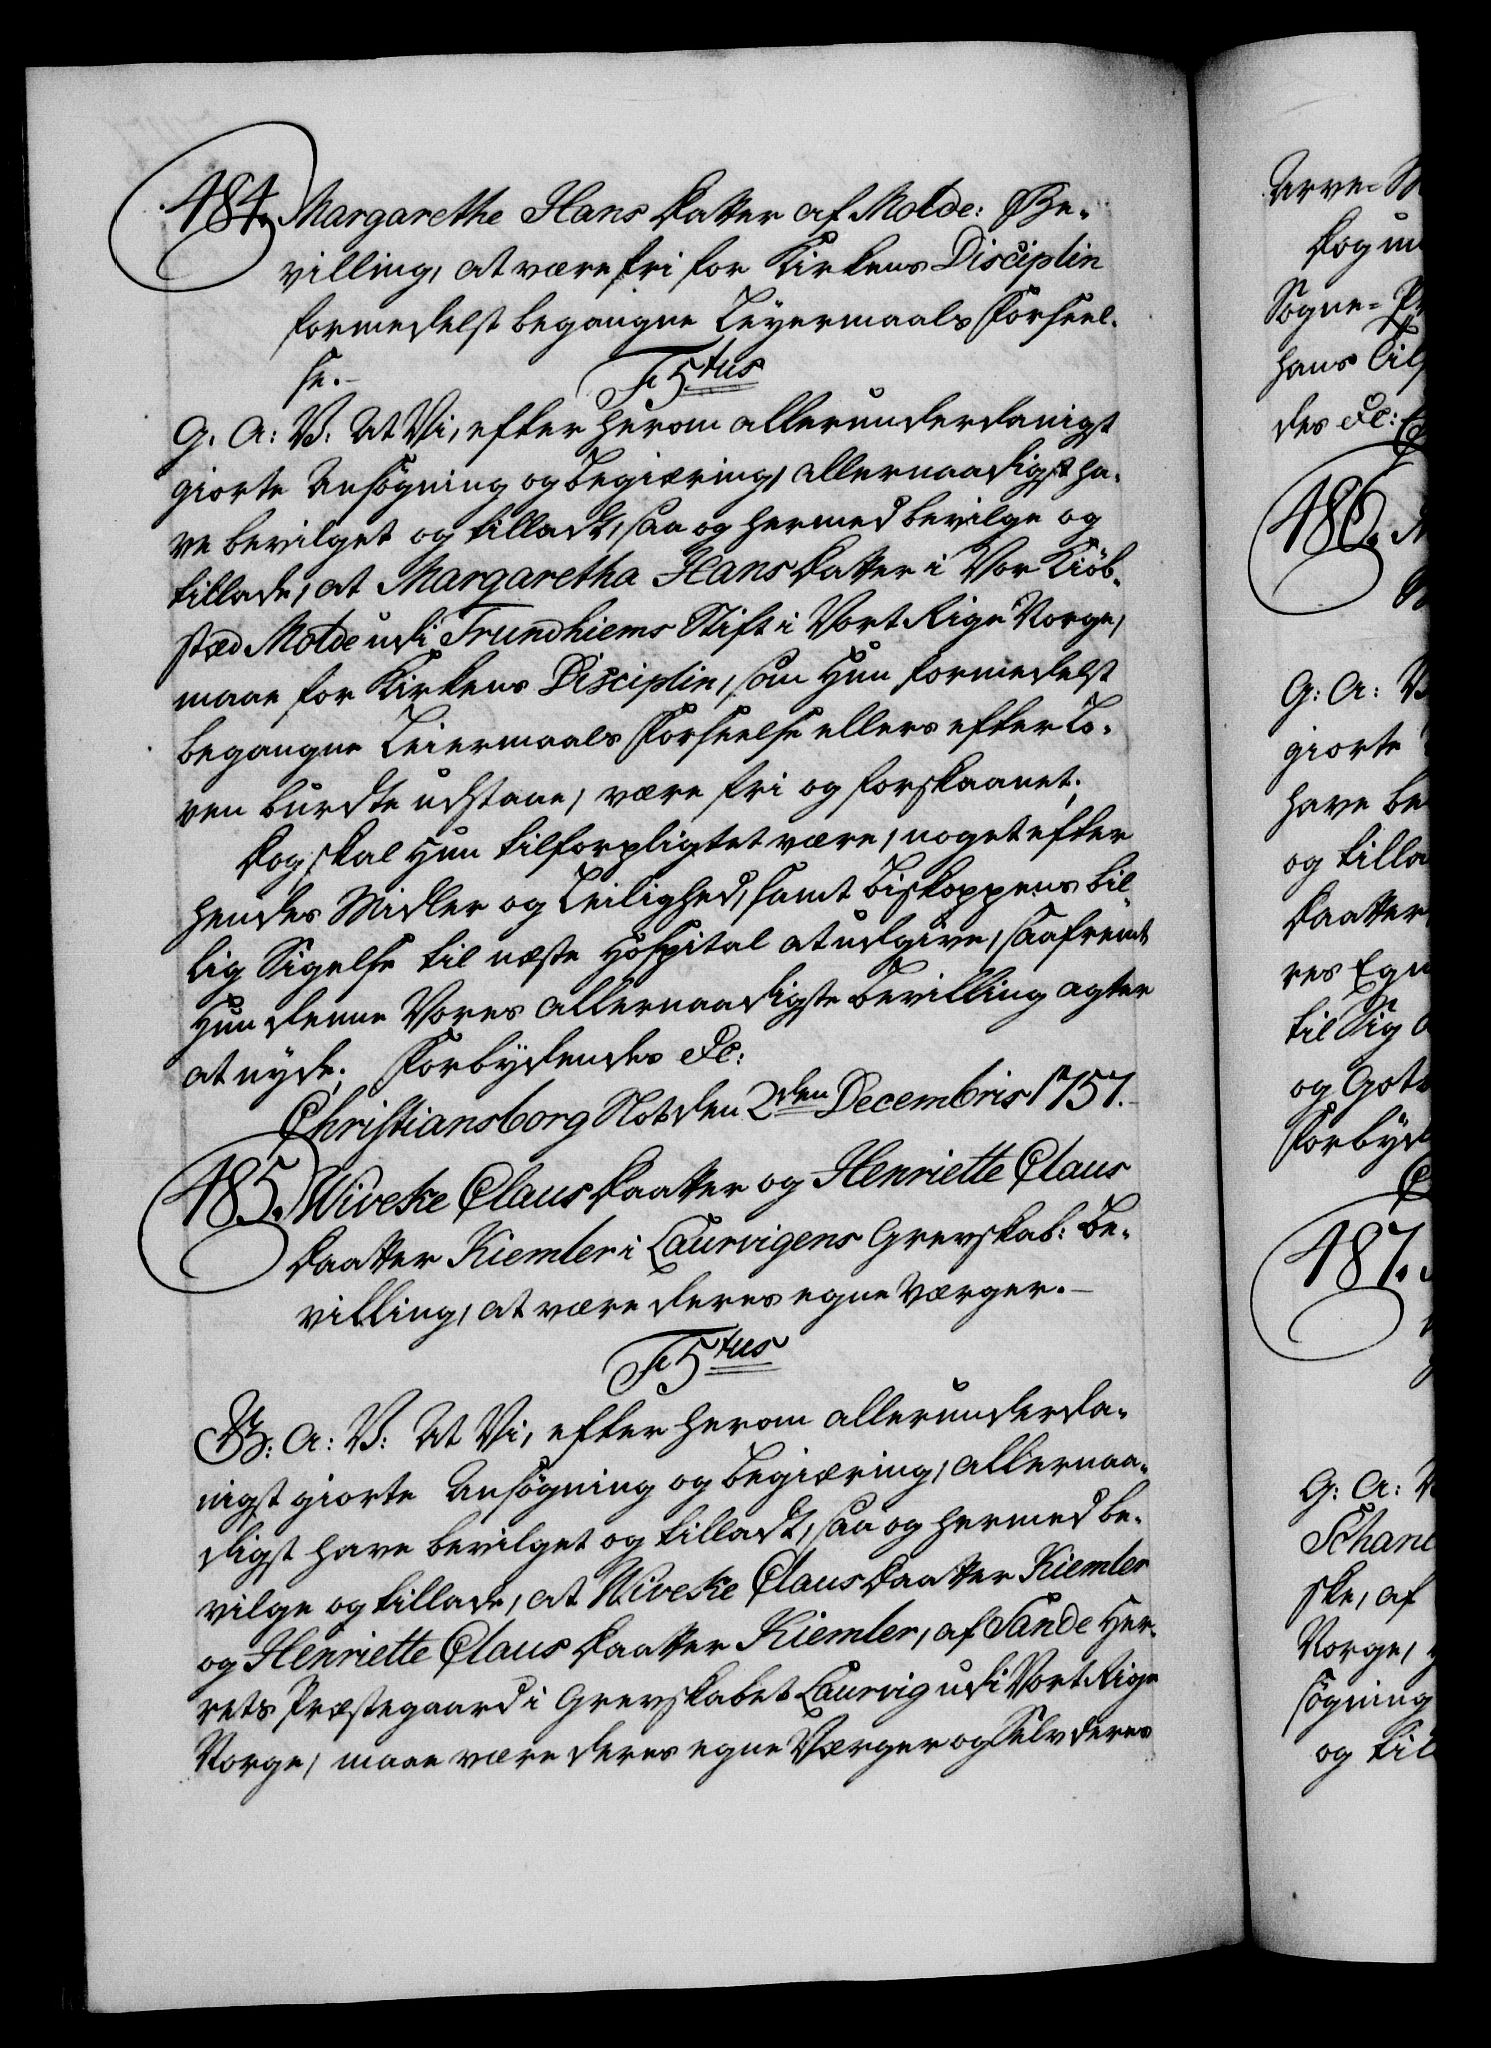 484. Margarethe Hans Datter af Molde: Be-
villing, at være fri for Kirkens Disciplin
formedelst begangne Leyermaals Forseel-
se.
F 5tus
G: A: V: At Vi, efter herom allerunderdanigst
giorte Ansögning og Begiæring, allernaadigst ha-
ve bevilget og tilladt, saa og hermed bevilge og
tillade, at Margaretha Hans Datter i Vor Kiöb-
stæd Molde udi Trundhiems Stift i Vort Rige Norge,
maae for Kirkens Disciplin, som Hun formedelst
begangne Leiermaals Forseelse ellers efter Lo-
ven burdte udstaae, være fri og forskaanet;
Dog skal Hun tilforpligtet være, noget efter
hendes Midler og Leilighed, samt Biskoppens bil-
lig Sigelse til næste Hospital at udgive, saafremt
Hun denne Vores allernaadigste Bevilling agter
at nyde; Forbydendes &c:
Christiansborg Slot den 2den Decembris 1757.
485. Wiveke Claus Daatter og Henriette Claus
Daatter Kiemler i Laurvigens Grevskab: Be-
villing, at være deres egne Værger.
F 5tus
G: A: V: At Vi, efter herom allerunderda-
nigst giorte Ansögning og Begiæring, allernaa-
digst have bevilget og tilladt, saa og hermed be-
vilge og tillade, at Wiveke Claus Daatter Kiemler
og Henriette Claus Daatter Kiemler, af Sande Her-
rets Præstegaard i Grevskabet Laurvig udi Vort Rige
Norge, maae være deres egne Værger og Selv deres
Arve-
Dog
Sogne-
hans
des &c:
486.
G: A: V
giorte
have be
og tilla
Daatter
res Egn
til Sig
og Got
Forbyd
487.
G: A: V
Schan
ske, af
Norge,
sögning
og til